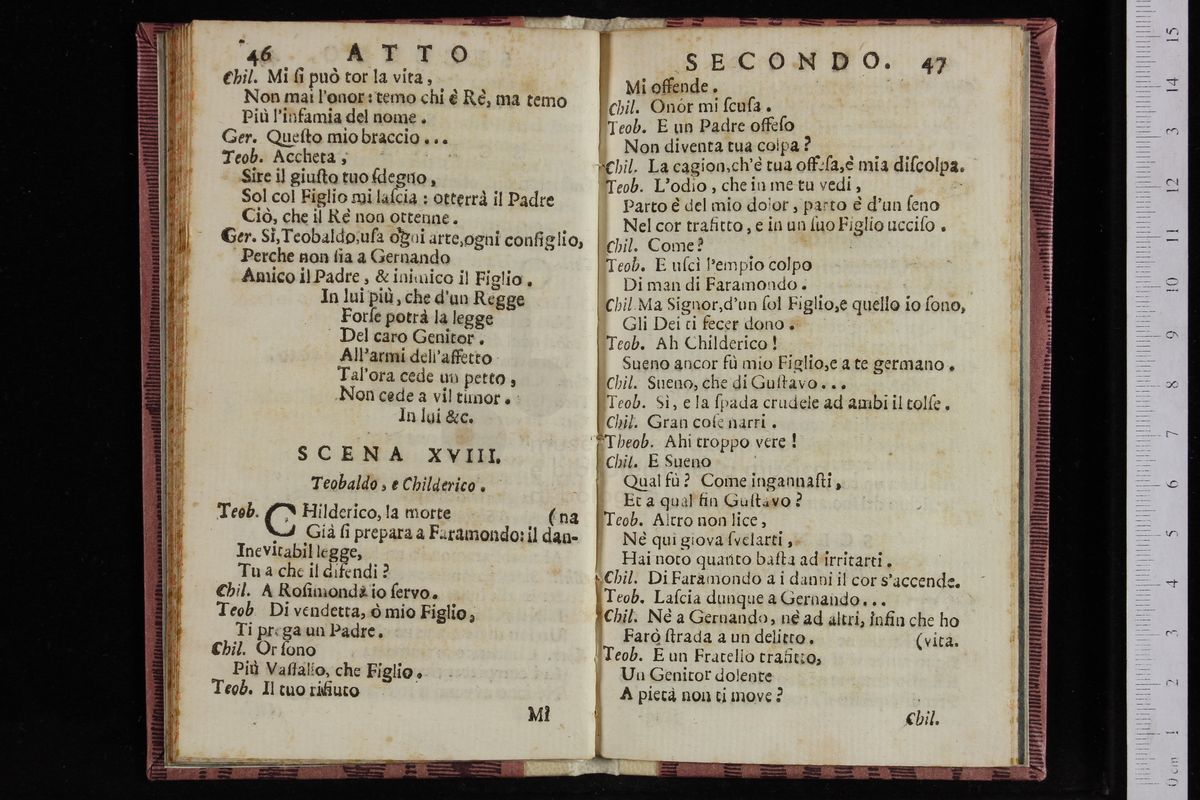 46 ATTO
Chil. Mi ſi può tor la vita,
Non mai l'onor: temo chi è Rè, ma temo
Più l'infamia del nome.
Ger. Queſto mio braccio...
Teob. Accheta,
Sire il giuſto tuo ſdegno,
Sol col Figlio mi laſcia: otterrà il Padre
Ciò, che il Rè non ottenne.
Ger. Sì, Teobaldo, uſa ogni arte, ogni conſiglio,
Perche non ſia a Gernando
Amico il Padre, & inimico il Figlio.
In lui più, che d'un Regge
Forſe potrà la legge
Del caro Genitor.
All'armi dell'affetto
Tal'ora cede un petto,
Non cede a vil timor.
In lui &c.
SCENA XVIII.
Teobaldo, e Childerico.
Teob. CHilderico, la morte (na
Già ſi prepara a Faramondo: il dan-
Inevitabil legge,
Tu a che il difendi?
Chil. A Roſimonda io ſervo.
Teob Di vendetta, ò mio Figlio,
Ti prega un Padre.
Chil. Or ſono
Più Vaſſallo, che Figlio.
Teob. Il tuo rifiuto
Mi
SECONDO. 47
Mi offende.
Chil. Onór mi ſcuſa.
Teob. E un Padre offeſo
Non diventa tua colpa?
Chil. La cagion, ch'è tua offeſa, è mia diſcolpa.
Teob. L'odio, che in me tu vedi,
Parto è del mio dolor, parto è d'un ſeno
Nel cor trafitto, e in un ſuo Figlio ucciſo.
Chil. Come?
Teob. E uſcì l'empio colpo
Di man di Faramondo.
Chil Ma Signor, d'un ſol Figlio, e quello io ſono,
Gli Dei ti fecer dono.
Teob. Ah Childerico!
Sueno ancor fù mio Figlio, e a te germano.
Chil. Sueno, che di Guſtavo...
Teob. Sì, e la ſpada crudele ad ambi il tolſe.
Chil. Gran coſe narri.
Theob. Ahi troppo vere!
Chil. E Sueno
Qual fù? Come ingannaſti,
Et a qual fin Guſtavo?
Teob. Altro non lice,
Nè qui giova ſvelarti,
Hai noto quanto baſta ad irritarti.
Chil. Di Faramondo a i danni il cor s'accende.
Teob. Laſcia dunque a Gernando...
Chil. Nè a Gernando, nè ad altri, infin che ho
Farò ſtrada a un delitto. (vita.
Teob. E un Fratello trafitto,
Un Genitor dolente
A pietà non ti move?
Chil.